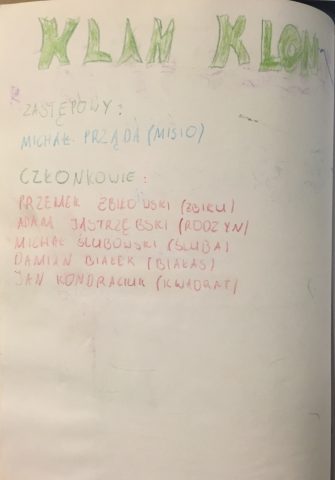 KLAN KLON
ZASTĘPOWY:
MICHAŁ PRZĄDA (MISIO)
CZŁONKOWIE:
PRZEMEK ZBIKOWSKI (ZBIKU)
ADAM JASTRZĘBSKI (RODZYN)
MICHAŁ ŚLUBOWSKI (ŚLUBA)
DAMIAN BIAŁEK (BIAŁAS)
JAN KONDRACIUK (KWADRAT)